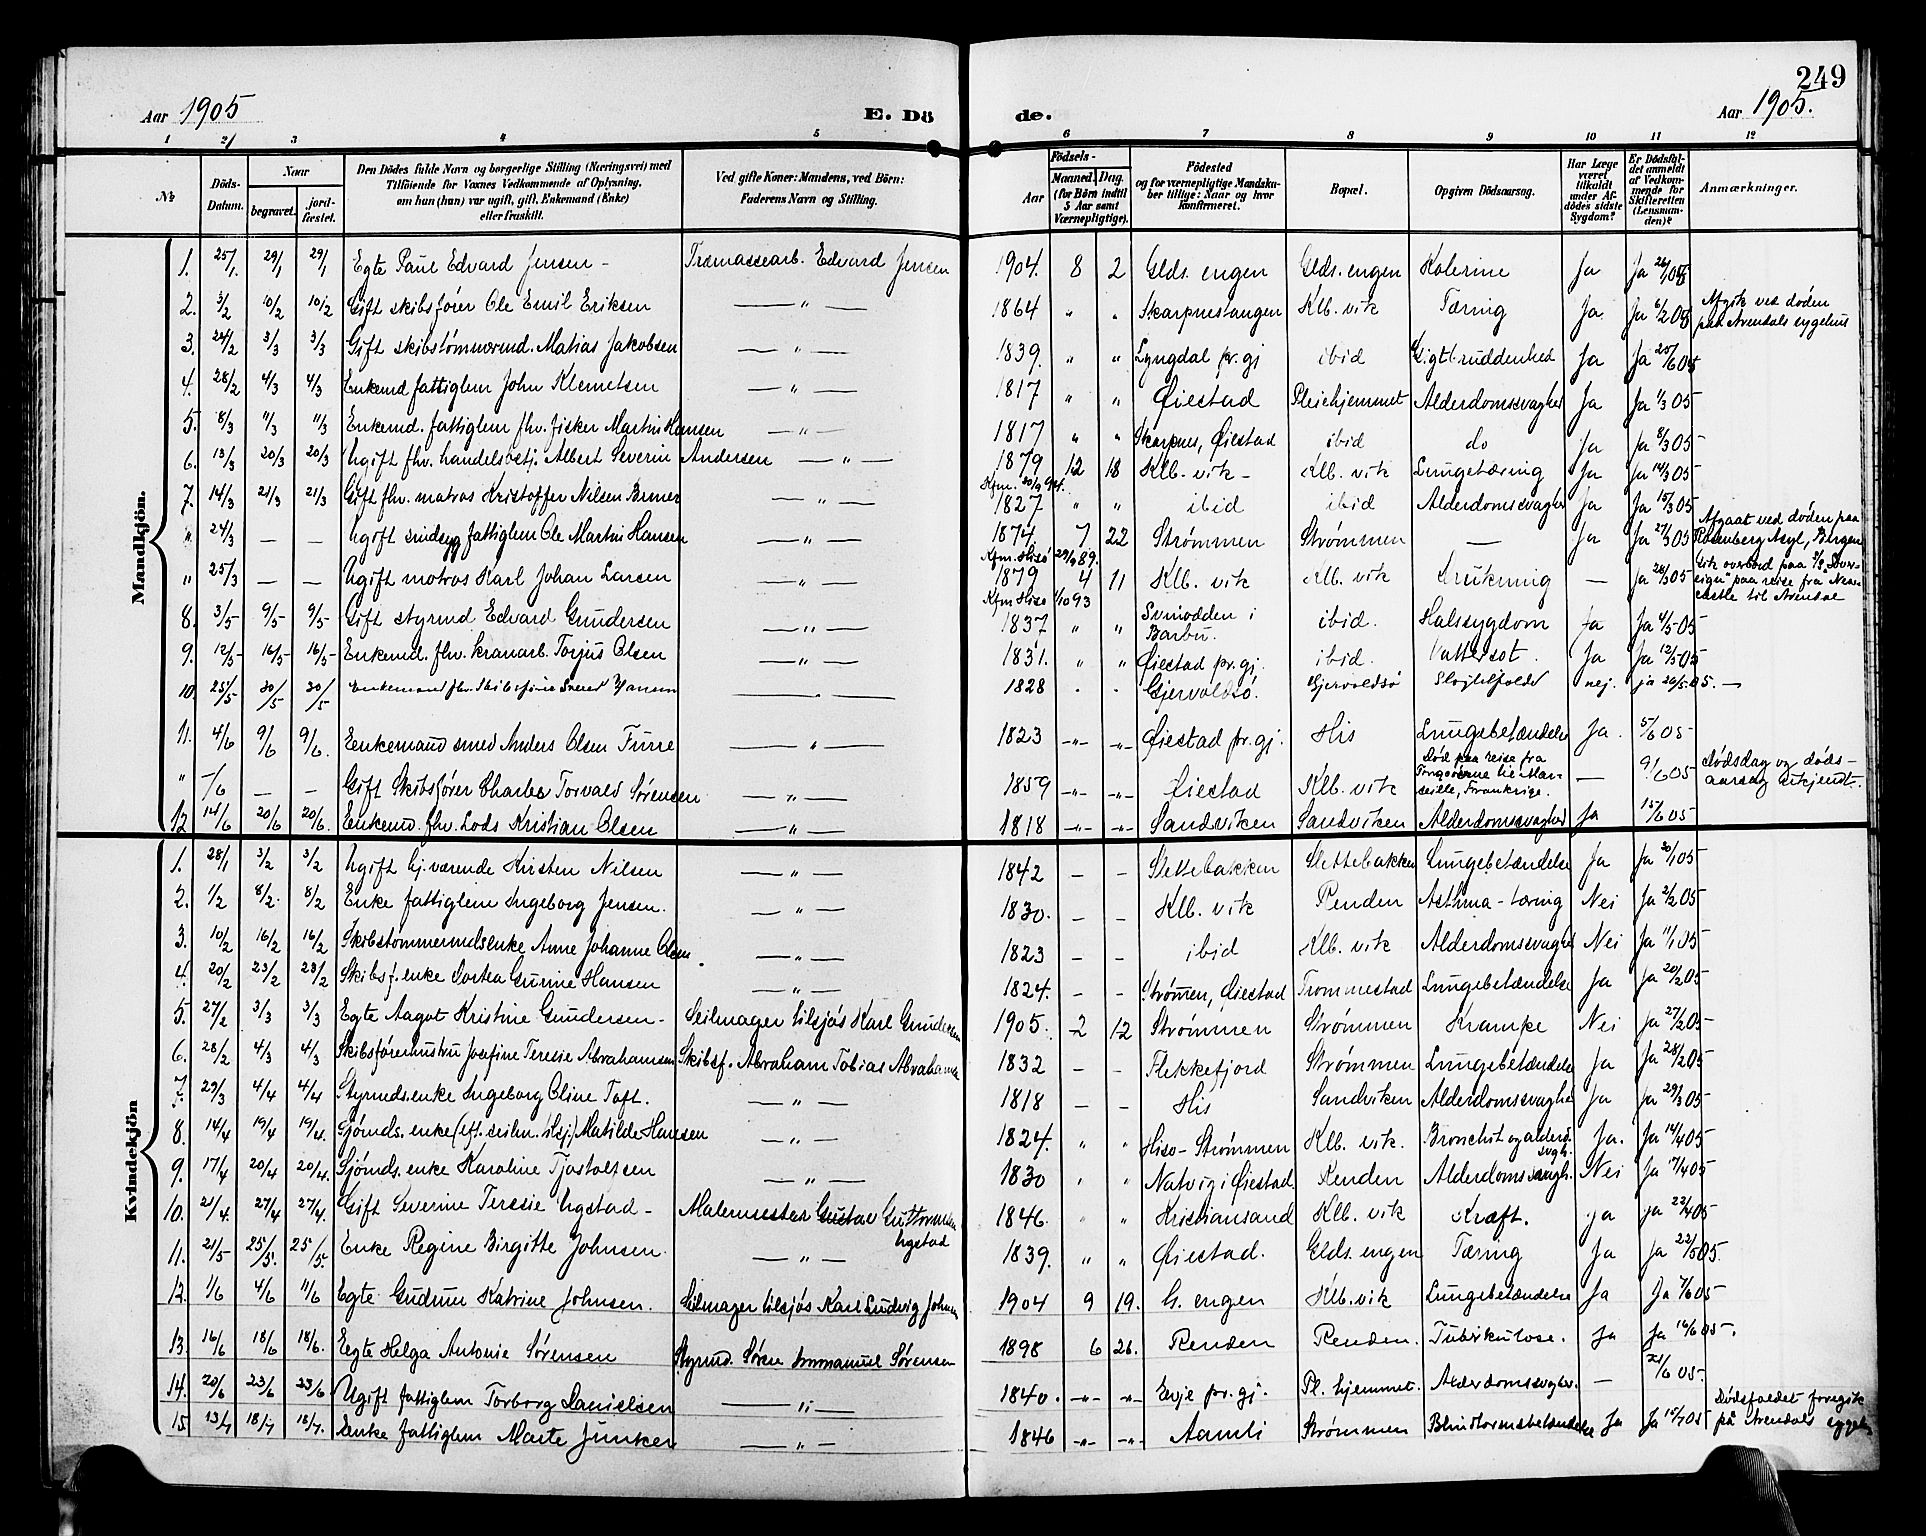 249
Aar 1905
E. Dö
de.
Aar 1905.
1 2 3 4 5 6 7 8 9 10 11 12
№
Döds-Datum.
Naar
begravet.
jord-fæstet.
Den Dödes fulde Navn og borgerlige Stilling (Næringsvei) med
Tilföiende for Voxnes Vedkommende af Oplysning,
om hun (han) var ugift, gift, Enkemand (Enke)
eller fraskilt.
Ved gifte Koner: Mandens, ved Börn:
Faderens Navn og Stilling.
Födsels-
Aar
Maaned. Dag.
(for Börn indtil
5 Aar samt
Værnepligtige).
Födested
og for værnepligtige Mandska-
ber tillige: Naar og hvor
konfirmeret.
Bopæl.
Opgiven Dödsaarsag.
Har Læge
været
tilkaldt
under Af-
dödes sidste
Sygdom?
Er Dödsfal-
det anmeldt
af Vedkom-
mende for
Skifteretten
(Lensman-
den)?
Anmærkninger.
Mandkjön.
1. 25/1. 29/1 29/1 Egte Paul Edvard Jensen - Træmassearb. Edvard Jensen 1904. 8 2 Glds. engen Glds. engen Kolerine Ja Ja 26/1 05
2. 3/2 10/2 10/2 Gift skibsfører Ole Emil Eriksen — " — 1864 " " Skarpnestangen Klb. vik Tæring Ja. Ja 6/2 05 Afgik ved døden
paa Arendals sygehus
3. 24/2 3/3 3/3 Gift skibstømmermd. Matias Jakobsen — " — 1839. " " Lyngdal pr. gj ibid Gigtbruddenhed Ja Ja 25/6 05
4. 28/2 4/3 4/3 Enkemd fattiglem John Klemetsen — " — 1817 " " Øiestad Pleiehjemmet Alderdomssvaghed Ja Ja 1/3 05
5. 8/3 11/3 11/3 Enkemd. fattiglem fhv. fisker Martin Hansen — " — 1817 " " Skarpnes, Øiestad ibid do Ja Ja 8/3 05
6. 13/3 20/3 20/3 Ugift fhv. handelsbetj. Albert Severin Andersen — " — 1879 12 18 Klb. vik - Klb. vik Lungetæring Ja Ja 14/3 05
Kfm. 30/9 94.
7. 14/3 21/3 21/3 Gift fhv. matros Kristoffer Nilsen Brmer — " — 1827 " " ibid ibid Alderdomssvaghed Ja Ja 15/3 05
" 24/3 — — Ugift sindsyg fattiglem Ole Martin Hansen — " — 1874. 7 22 Strømmen Strømmen — Ja Ja 27/3 05 Afgaat ved døden paa
Rosenberg Asyl, Bergen
Kfm. Hisø 29/9 89.
" 25/3 — — Ugift matros Karl Johan Larsen — " — 1879 4 11 Klb. vik Klb. vik Drukning — Ja 28/3 05 Gik overbord paa S/S "Sover-
eign" paa reise fra New-
castle til Arendal
Kfm Hisø 1/10 93
8. 3/5 9/5 9/5 Gift styrmd Edvard Gundersen — " — 1837 " " Svinodden i
Barbu. ibid. Halssygdom Ja Ja 4/5 05
9. 12/5 16/5 16/5 Enkemd. fhv. kranarb. Torjus Olsen — " — 1831. " " Øiestad pr. gj. ibid. Vattersot. Ja Ja 12/5 05
10. 25/5 30/5 30/5 Enkemand fhv. skibsfører Svend Hansen — " — 1828 " " Gjervoldsø. Gjervoldsø Slagtilfælde nej. ja 26/5 05. —
11. 4/6 9/6 9/6. Enkemand smed Anders Olsen Furre — " — 1823 -"- -"- Øiestad pr. gj. His Lungebetændelse Ja. 5/6 05
" -/6 — — Gift Skibsfører Charles Torvald Sørensen — " — 1859 -"- -"- Øiestad Klb. vik Død paa reise fra
Torgoörne til Mar-
seille, Frankrige. — 9/6 05 Dødsdag og døds-
aarsag ukjendt.
12 14/6 20/6 20/6. Enkemd. fhv. Lods Kristian Olsen — " — 1818 -"- -"- Sandviken Sandviken Alderdomssvaghed Ja 15/6 05
Kvindekjön
1. 28/1 3/2 3/2 Ugift hj. værende Kirsten Nilsen — " — 1842 - - Slettebakken Slettebakken Lungebetændelse Ja Ja 30/1 05
2. 1/2 8/2. 8/2 Enke fattiglem Ingeborg Jensen. — " — 1830. - - Klb. vik Renden Asthma - tæring Nei Ja 2/2 05
3. 10/2 16/2 16/2 Skibstømmermdsenke Anne Johanne Olsen — " — 1823 - - ibid Klb. vik Alderdomssvaghed Nei Ja 11/1 05
4. 20/2 23/2 23/2 Skibsf. enke Dortea Gurine Hansen — " — 1824. - - Strømen, Øiestad Trommestad Lungebetændelse Ja Ja 20/2 05
5. 27/2 3/3 3/3 Egte Aagot Kristine Gundersen - Seilmager tilsjøs Karl Gundersen 1905. 2 12 Strømmen Strømmen Krampe Nei Ja 27/2 05
6. 28/2 4/3 4/3 Skibsførerhustru Josefine Teresie Abrahamsen Skibsf. Abraham Tobias Abrahams 1832 - - Flekkefjord Strømmen Lungebetændelse Ja Ja 28/2 05
7. 29/3 4/4 4/4 Styrmds. enke Ingeborg Oline Toft. — " — 1818 - - His Sandviken Alderdomssvaghed Ja Ja 29/3 05
8. 14/4 19/4 19/4. Sjømds. enke (eft. seilm. tilsj.) Matilde Hansen — " — 1824. " " Hisø-Strømmen Klb. vik. Bronchit og alderd.
svgh. Ja. Ja 14/4 05
9. 17/4 20/4 20/4. Sjømds. enke Karoline Tjostolfsen — " — 1830 " " Natvig i Øiestad Renden Alderdomssvagh. Nei Ja 17/4 05
10. 21/4. 27/4 27/4. Gift Severine Teresie Ugstad - Malermester Gustav Guttormsen
Ugstad 1846. " " Kristiansand Klb. vik Kræft. ja ja 22/4 05
11. 21/5 25/5. 25/5. Enke Regine Birgitte Johnsen. — " — 1839. " " Øiestad. Glds. engen Tæring Ja Ja 22/5 05.
12. 1/6 4/6 11/6 Egte Gudrun Katrine Johnsen. Seilmager tilsjøs Karl Ludvig Johnsen 1904 9 19. G. engen Klb. vik Lungebetændelse Ja Ja 7/6 05
13. 16/6 18/6 18/6. Egte Helga Antonie Sørensen Styrmd. Søren Immanuel Sørensen 1898 6 26. Renden Renden. Tuberkulose. Ja Ja 16/6 05.
14. 20/6 23/6 23/6 Ugift fattiglem Torborg Danielsen — " — 1840. -"- -"- Evje pr. gj. Pl. hjemmet. Alderdomssvaghed. — 21/6 05.
15. 13/7 18/7 18/7. Enke fattiglem Marte Junker — " — 1846 -"- -"- Aamli Strømmen Blindtarmsbetændelse Ja Ja 15/7 05 Dødsfaldet foregik
på Arendals sygehus